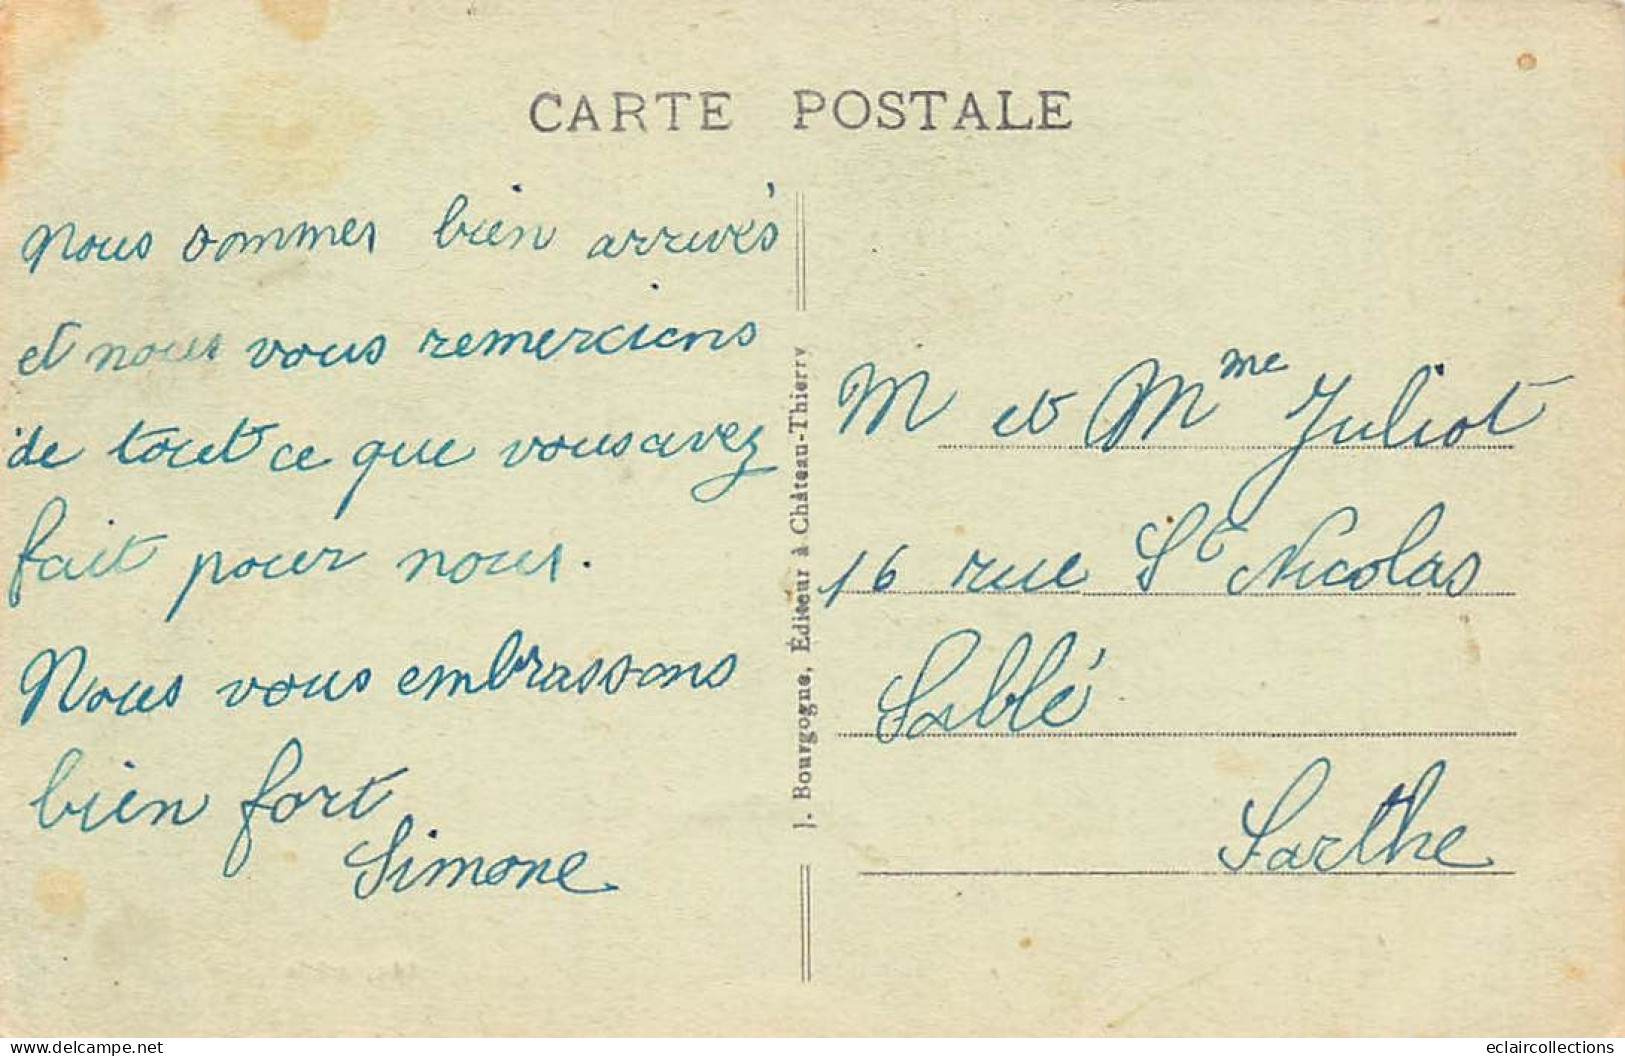 CARTE POSTALE
Nous sommes bien arrivés
et nous vous remercions
de tout ce que vous avez
fait pour nous.
Nous vous embrassons
bien fort
Simone
J. Bourgogne, Éditeur à Château-Thierry
M et Mme Juliot
16 rue St Nicolas
Sablé
Sarthe
www.delcampe.net
eclaircollections